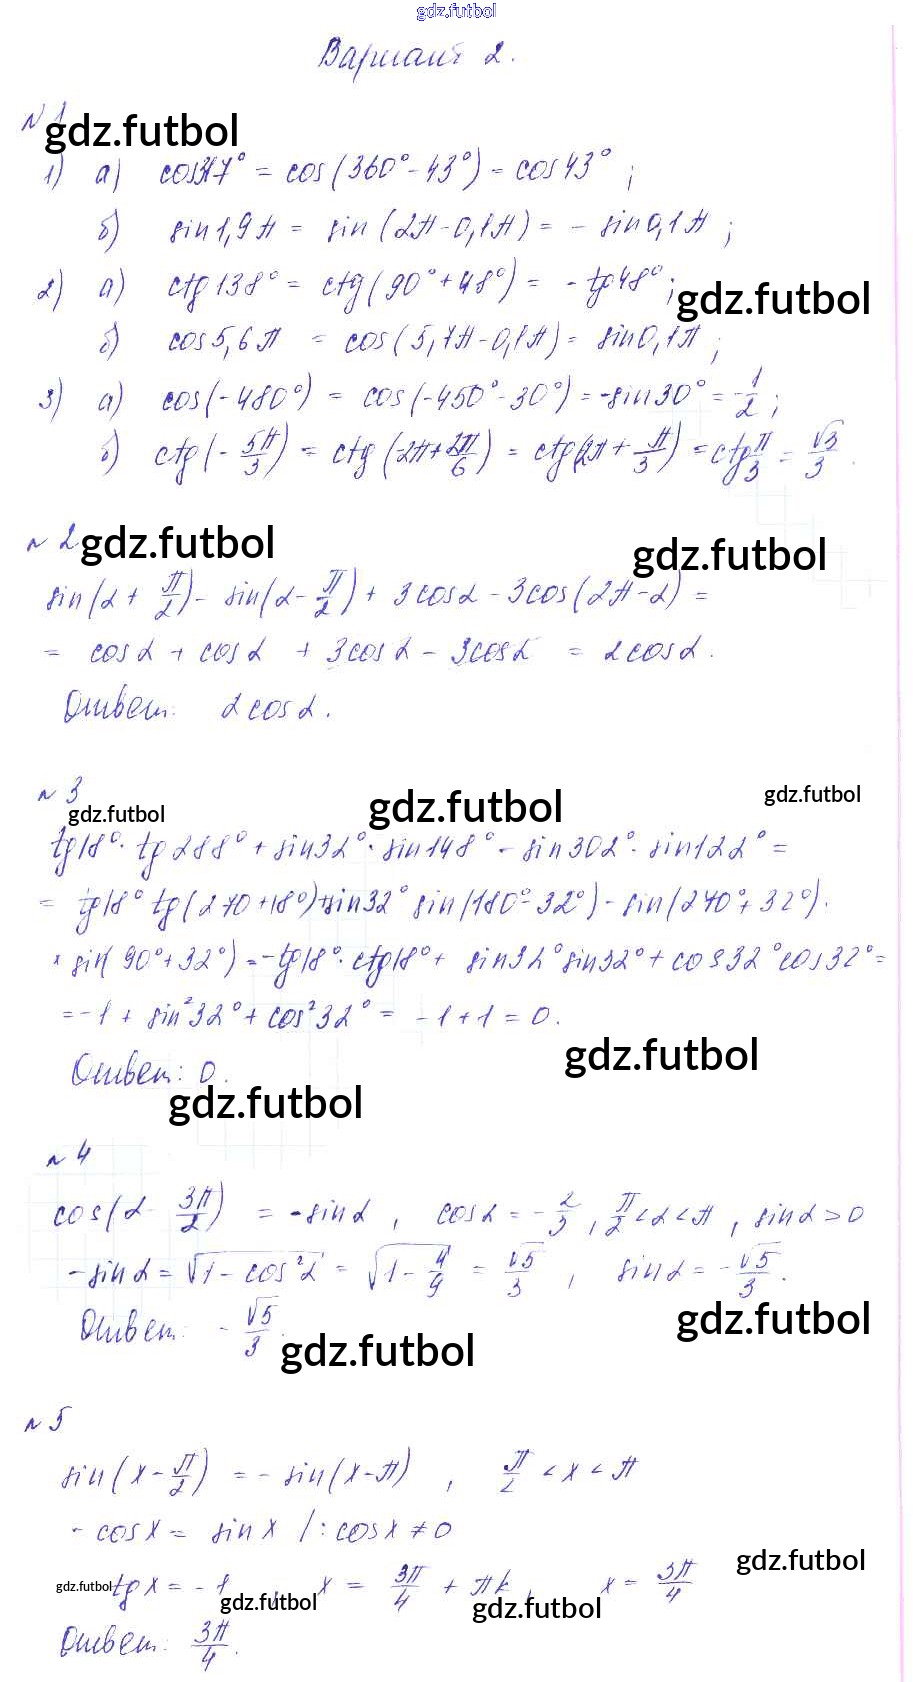 gdz.futbol
Вариант 2.
№1
gdz.futbol
1) а) cos317° = cos(360° - 43°) = cos43° ;
б) sin1,9π = sin(2π - 0,1π) = - sin0,1π ;
2) а) ctg138° = ctg(90° + 48°) = - tg48° ;
gdz.futbol
б) cos5,6π = cos(5,7π - 0,1π) = sin0,1π ;
3) а) cos(-480°) = cos(-450° - 30°) = -sin30° = -1/2 ;
б) ctg(-5π/3) = ctg(-2π + 2π/6) = ctg(2π + π/3) = ctg π/3 = √3/3 .
№2
gdz.futbol
gdz.futbol
sin(α + π/2) - sin(α - π/2) + 3cosα - 3cos(2π - α) =
= cosα + cosα + 3cosα - 3cosα = 2cosα .
Ответ: 2cosα .
№3
gdz.futbol
gdz.futbol
gdz.futbol
tg18° · tg288° + sin32° · sin148° - sin302° · sin122° =
= tg18° tg(270 + 18°) + sin32° sin(180° - 32°) - sin(270° + 32°) ·
× sin(90° + 32°) = - tg18° · ctg18° + sin32° sin32° + cos32° cos32° =
= -1 + sin²32° + cos²32° = -1 + 1 = 0 .
gdz.futbol
Ответ: 0 .
gdz.futbol
№4
cos(α - 3π/2) = -sinα , cosα = -2/3 , π/2 < α < π , sinα > 0
-sinα = √(1 - cos²α) = √(1 - 4/9) = √5/3 , sinα = -√5/3 .
gdz.futbol
Ответ: -√5/3 .
gdz.futbol
№5
sin(x - π/2) = - sin(x - π) , π/2 < x < π
- cosx = sinx /: cosx ≠ 0
gdz.futbol
gdz.futbol
tgx = -1 , x = 3π/4 + πk , x = 3π/4
gdz.futbol
gdz.futbol
Ответ: 3π/4 .